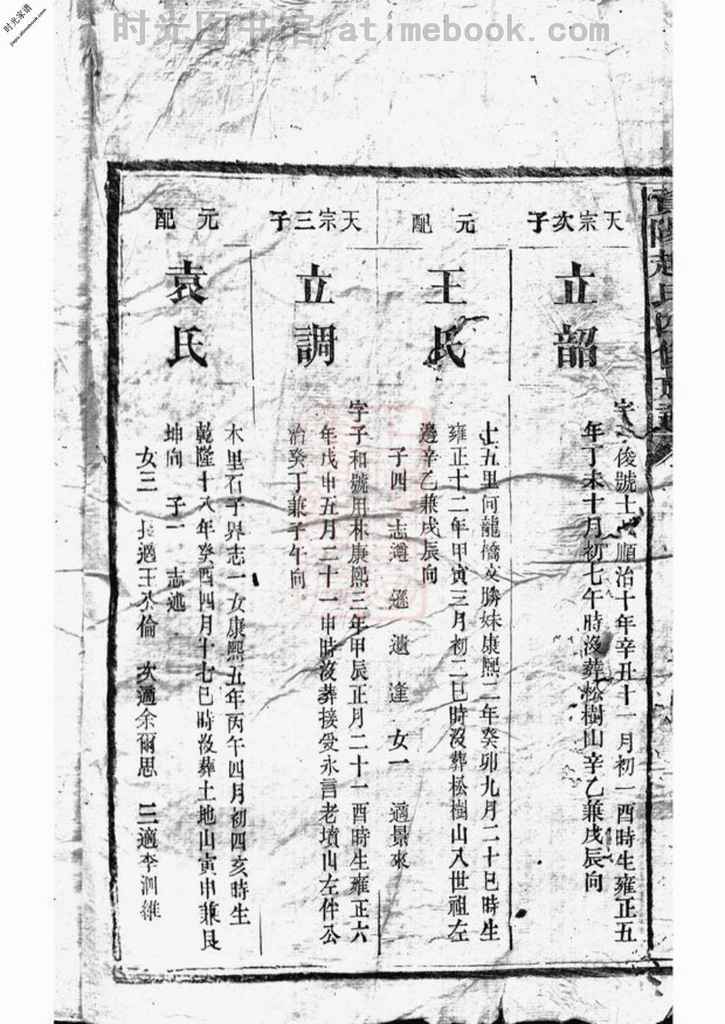 时光图书馆 atimebook.com
时光家谱
天宗次子
立韶
俊號士 順治十年辛丑十一月初一酉時生雍正五
年丁未十月初七午時沒葬松樹山辛乙兼戌辰向
元配
王氏
七五里何龍橋文勝妹康熙二年癸卯九月二十巳時生
雍正十二年甲寅三月初二巳時沒葬松樹山入世祖左
邊辛乙兼戌辰向
子四 志遵 遜 遜 達 女一 適景來
天宗三子
立調
字子和號用林康熙三年甲辰正月二十一酉時生雍正六
年戊申五月二十一申時沒葬接受永言老墳山左伴公
冶癸丁兼子午向
元配
袁氏
木里石子界志一女康熙五年丙午四月初四亥時生
乾隆十八年癸酉四月十七巳時沒葬土地山寅申兼艮
坤向 子一 志述
女三 長適王 倫 次適余爾思 三適李洞維